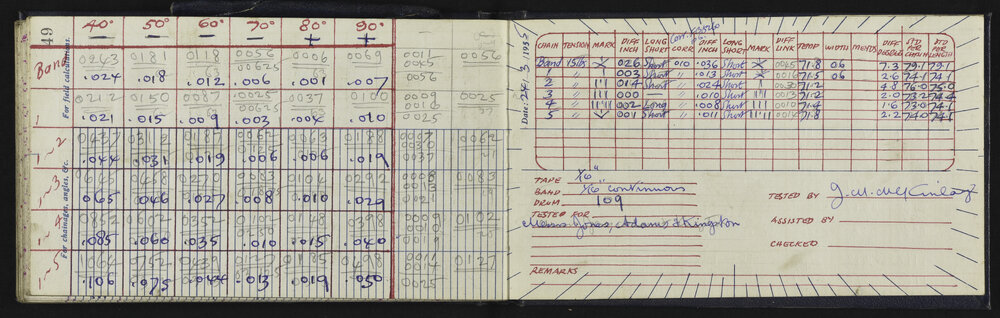 49
For field calculations.
For chainages, angles, &c.
40° 50° 60° 70° 80° 90°
— — — — + +
Band 0243 0181 0118 0056 0006 0069 0011 0056
00625 0045
.024 .018 .012 .006 .001 .007 0056
0212 0150 0087 0025 0037 0100 0009 0025
00625 0016
1 .021 .015 .009 .003 .004 .010 0025
0437 0312 0187 0062 0063 0188 0007 0062
0030
1~2 .044 .031 .019 .006 .006 .019 0037
0645 0458 0270 0083 0104 0292
1~3 .065 .046 .027 .008 .010 .029
0852 0602 0352 0102 0148 0398 0009 0102
0010
1~4 .085 .060 .035 .010 .015 .040 0019
1064 0752 0439 0127 0185 0498 0127
0014
1~5 .106 .075 .044 .013 .019 .050 0025
Date: 24.3.1955
Corr.
CHAIN TENSION MARK DIFF INCH LONG SHORT CORR. DIFF INCH LONG SHORT MARK DIFF LINK TEMP WIDTH DIFF DEGREES STD PER CHAIN STD PER LENGTH
Band 15lbs .026 Short .010 .036 Short .0045 71.8 06 7.3 79.1 79.1
1 " .003 Short " .013 Short .0016 71.5 06 2.6 74.1 74.1
2 " .014 Short " .024 Short .0030 71.2 4.8 76.0 75.0
3 " .000 " .010 Short .0013 71.2 2.0 73.2 74.4
4 " .002 Long " .008 Short .0010 71.4 1.6 73.0 74.1
5 " .001 Short " .011 Short .0014 71.8 2.2 74.0 74.1
TAPE 1/6"
BAND 1/16" continuous
DRUM 109
TESTED BY
TESTED FOR
Messrs. Jones, Adam & Kingston
ASSISTED BY
CHECKED
REMARKS